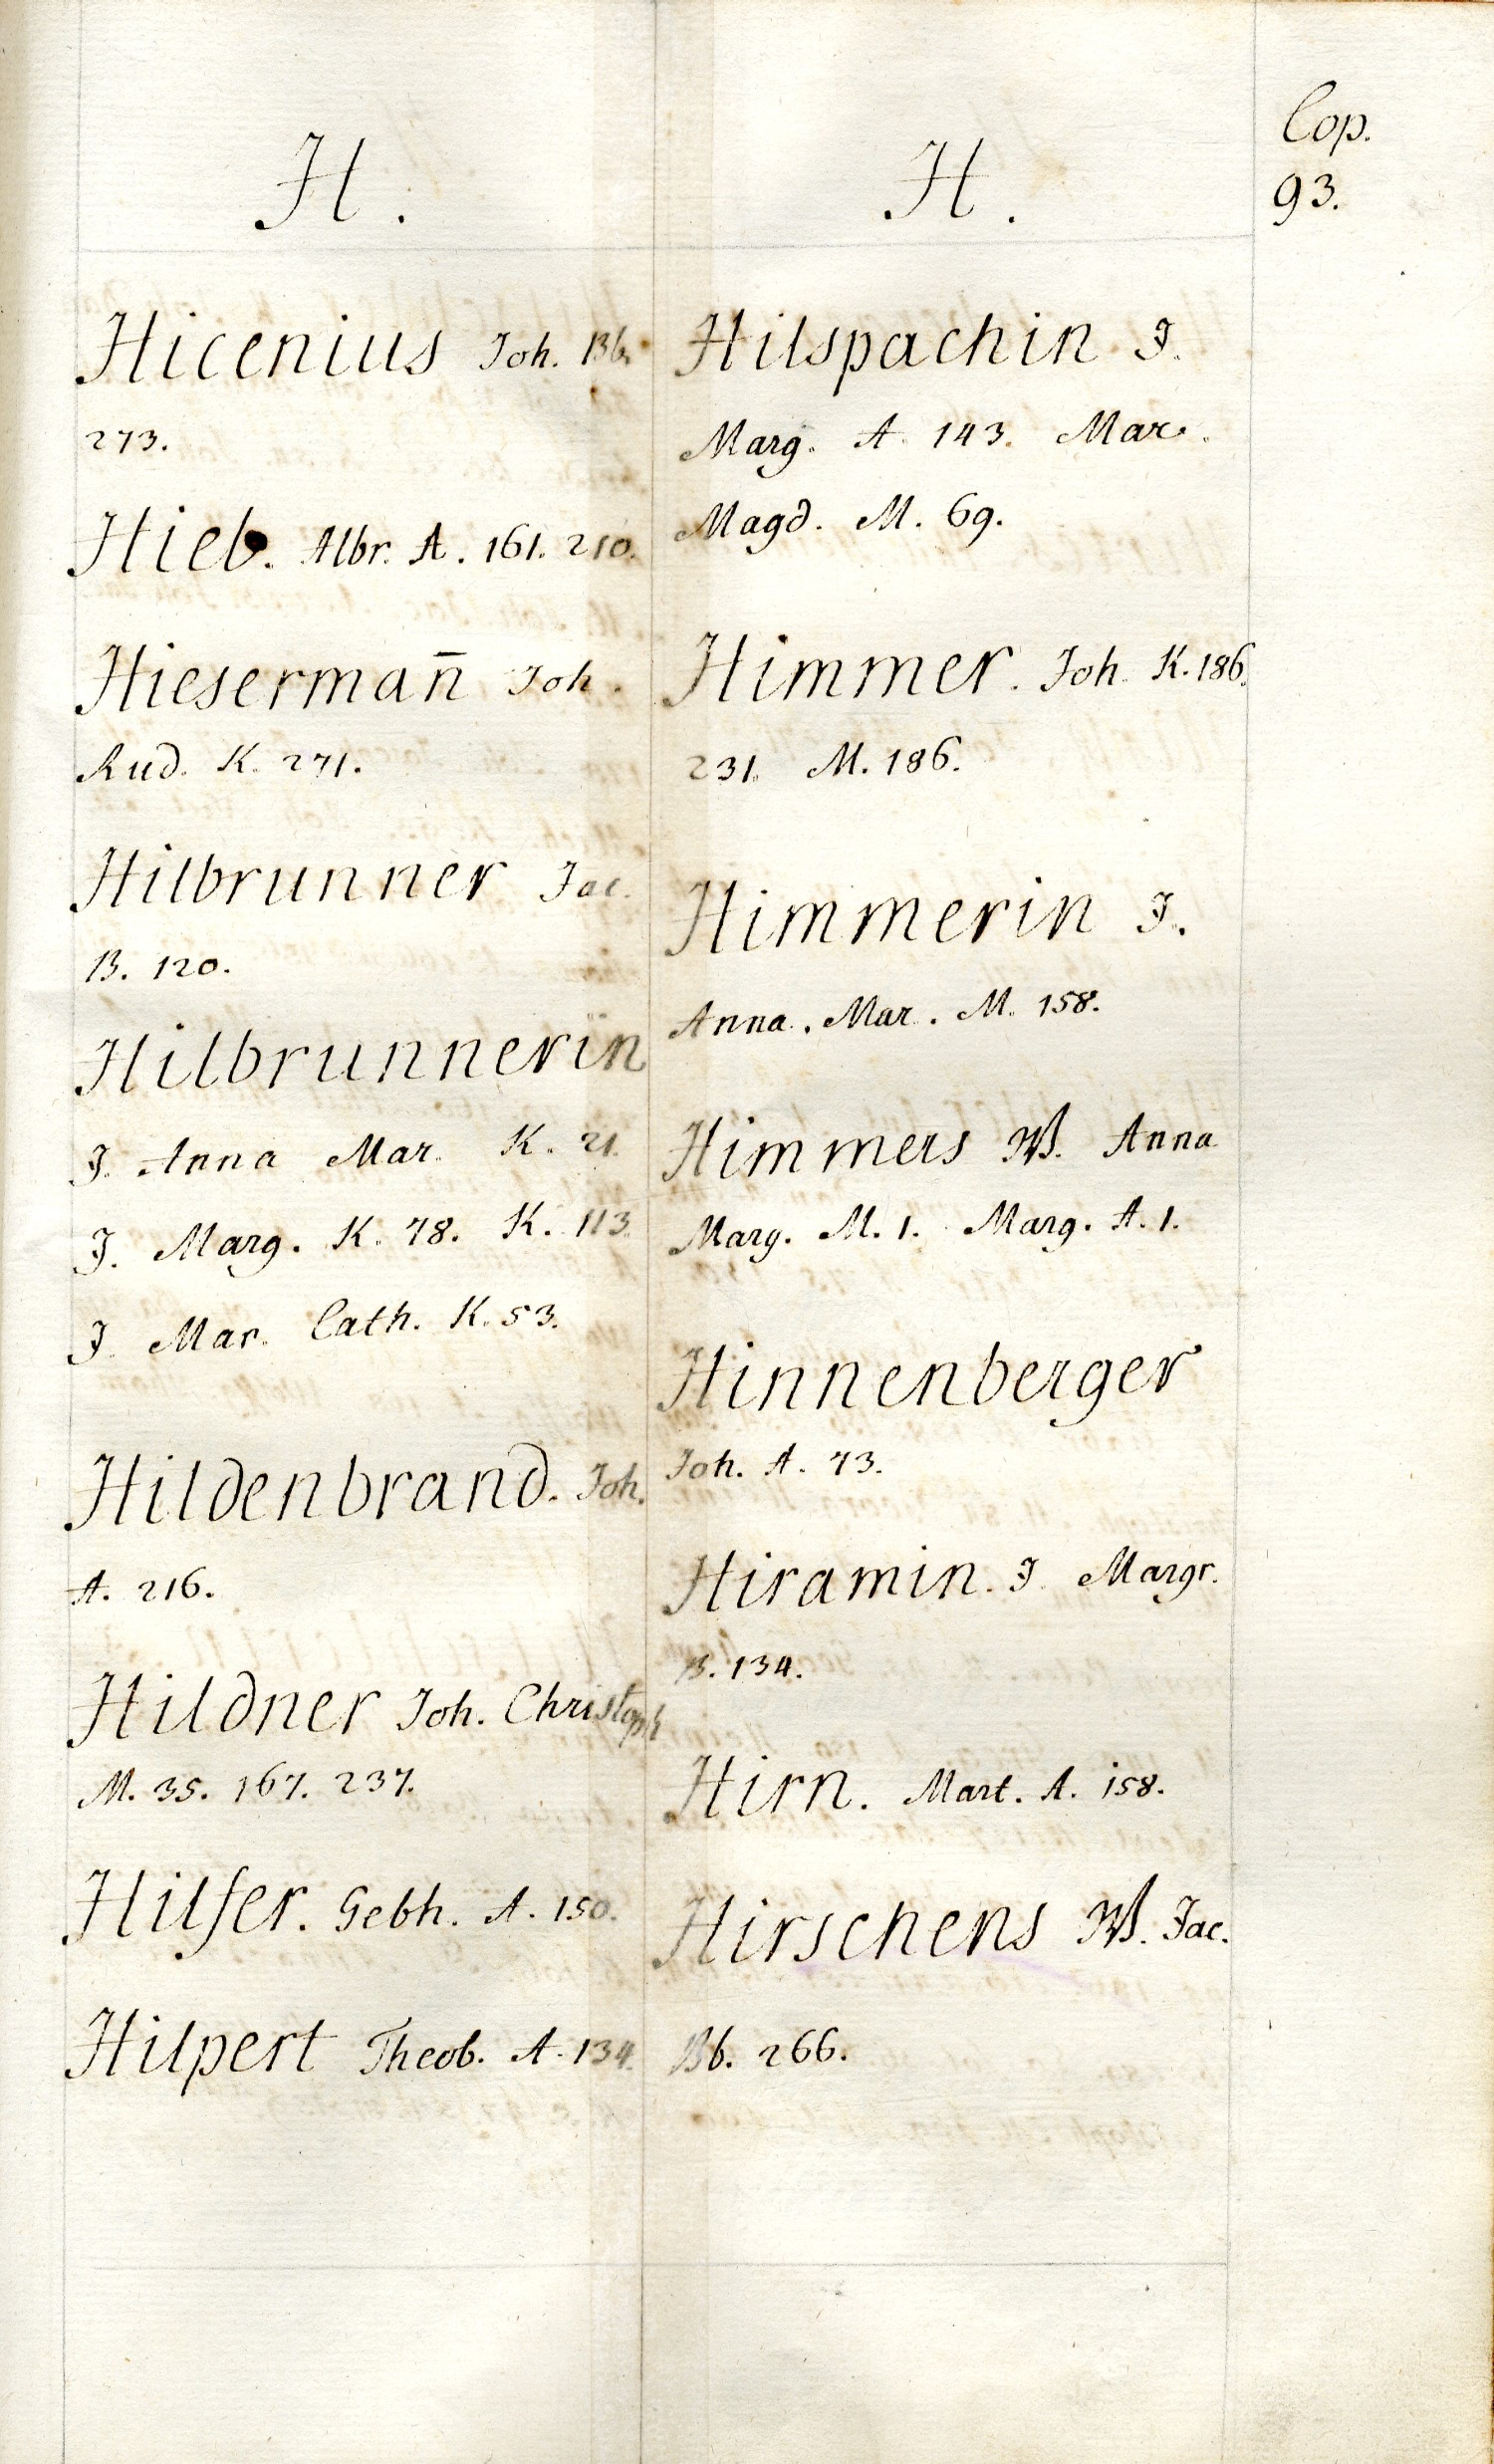 Cop.
93.
H.
Hicenius Joh. Bb.
273.
Hieb. Albr. A. 161. 210.
Hiesermañ Joh.
Rud. K. 271.
Hilbrunner Jac.
B. 120.
Hilbrunnerin
J. Anna Mar. K. 21.
J. Marg. K. 78. K. 113.
J. Mar. Cath. K. 53.
Hildenbrand. Joh.
A. 216.
Hildner Joh. Christoph
M. 35. 167. 237.
Hilfer. Gebh. A. 150.
Hilpert Theob. A. 134.
H.
Hilspachin J.
Marg. A. 143. Mar.
Magd. M. 69.
Himmer. Joh. K. 186.
231. M. 186.
Himmerin J.
Anna. Mar. M. 158.
Himmers W. Anna
Marg. M. 1. Marg. A. 1.
Hinnenberger
Joh. A. 73.
Hiramin. J. Margr.
B. 134.
Hirn. Mart. A. 158.
Hirschens W. Jac.
Bb. 266.